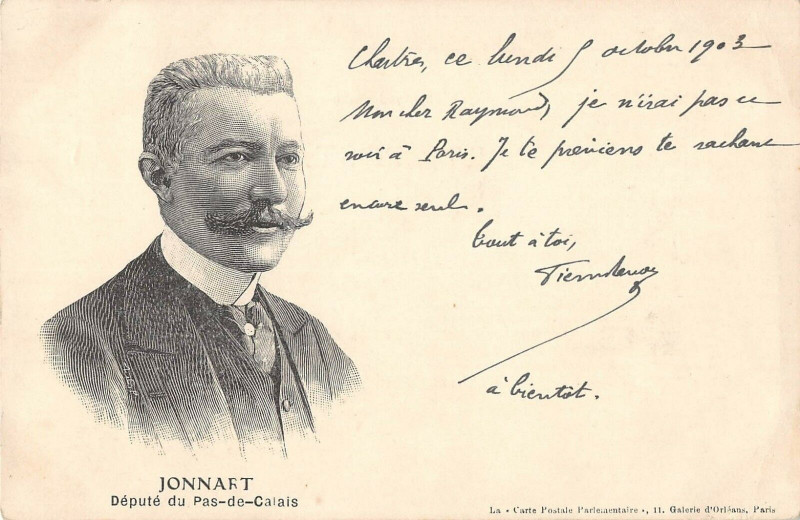 Chartres, ce lundi 5 octobre 1903
Mon cher Raymond, je n'irai pas ce
soir à Paris. Je te préviens te sachant
encore seul.
tout à toi,
à bientôt.
JONNART
Député du Pas-de-Calais
La « Carte Postale Parlementaire », 11, Galerie d'Orléans, Paris